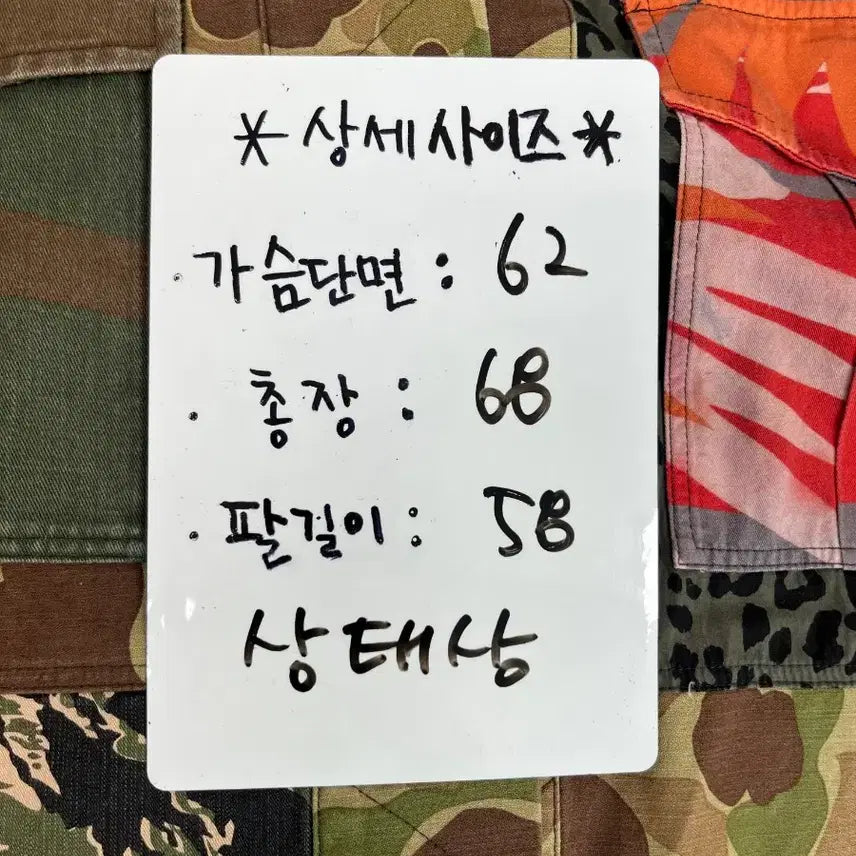 * 상세사이즈 *
· 가슴단면 : 62
· 총장 : 68
· 팔길이 : 58
상태상